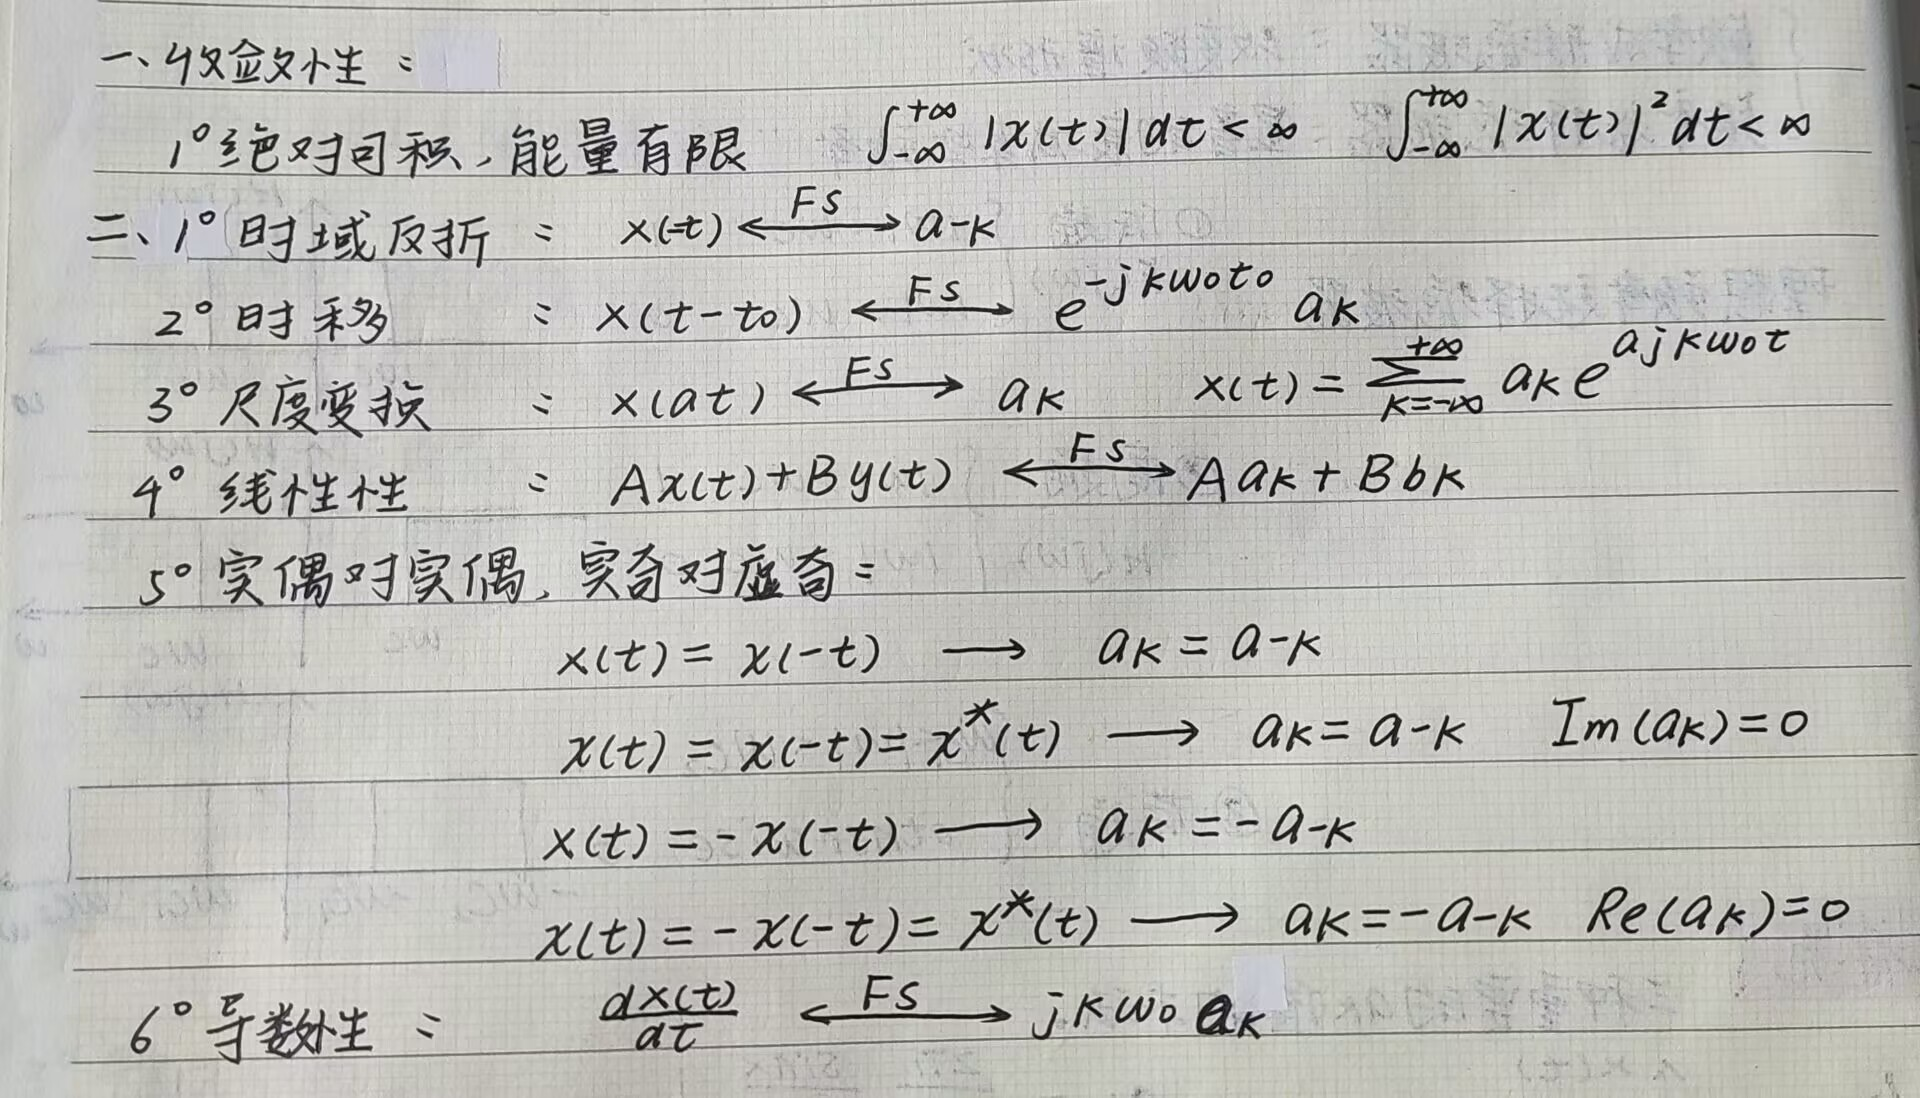 一、收敛性：
1° 绝对可积，能量有限 ∫_{-∞}^{+∞} |x(t)| dt < ∞ ∫_{-∞}^{+∞} |x(t)|² dt < ∞
二、1° 时域反折： x(-t) ←FS→ a-k
2° 时移： x(t-t₀) ←FS→ e^{-jkw₀t₀} ak
3° 尺度变换： x(at) ←FS→ ak x(t) = ∑_{k=-∞}^{+∞} ak e^{ajkw₀t}
4° 线性性： Ax(t)+By(t) ←FS→ Aak + Bbk
5° 实偶对实偶，实奇对虚奇：
x(t) = x(-t) → ak = a-k
x(t) = x(-t) = x*(t) → ak = a-k Im(ak)=0
x(t) = -x(-t) → ak = -a-k
x(t) = -x(-t) = x*(t) → ak = -a-k Re(ak)=0
6° 导数性： dx(t)/dt ←FS→ jkw₀ ak